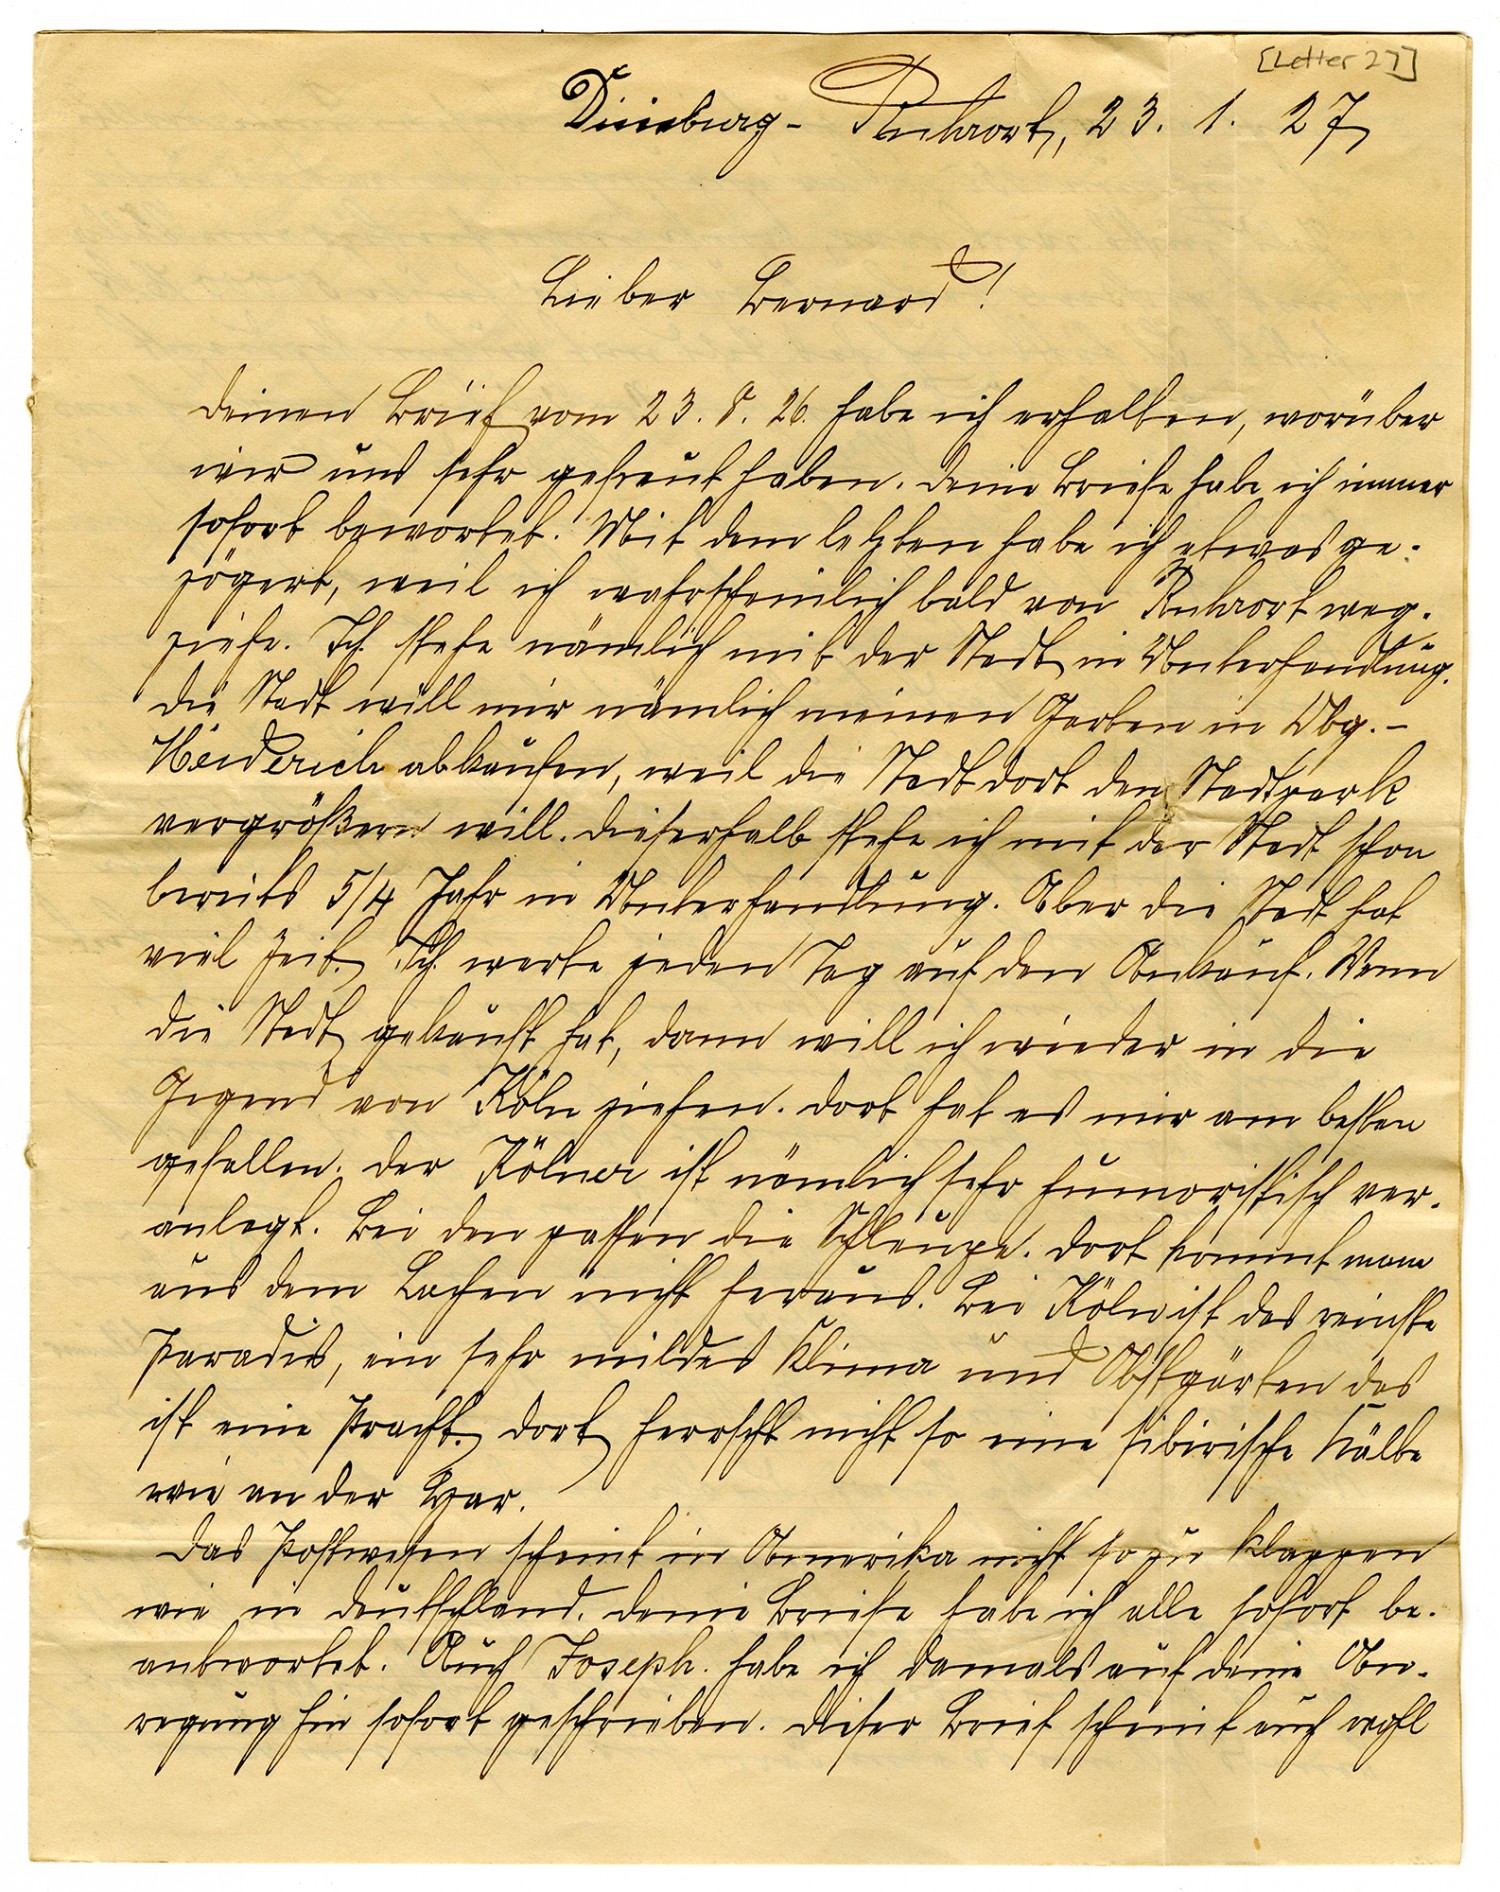 [Letter 27]
Duisburg - Ruhrort, 23. 1. 27
Lieber Bernard!
Deinen Brief vom 23. 8. 26. habe ich erhalten, worüber
wir uns sehr gefreut haben. Deine Briefe habe ich immer
sofort bewortet. Mit dem letzten habe ich etwas ge-
zögert, weil ich wahrscheinlich bald von Ruhrort weg-
ziehe. Ich stehe nämlich mit der Stadt in Unterhandlung.
Die Stadt will mir nämlich meinen Garten in Dbg. -
Meiderich abkaufen, weil die Stadt dort den Stadtpark
vergrößern will. Dieserhalb stehe ich mit der Stadt schon
bereits 5/4 Jahr in Unterhandlung. Aber die Stadt hat
viel Zeit. Ich warte jeden Tag auf den Ankauf. Wenn
die Stadt gekauft hat, dann will ich wieder in die
Gegend von Köln ziehen. Dort hat es mir am besten
gefallen. Der Kölner ist nämlich sehr humoristisch ver-
anlegt. Bei den passen die Dort kommt man
aus dem Lachen nicht heraus. Bei Köln ist das reinste
Paradis, ein sehr mildes Klima und Obstgärten das
ist eine Pracht. Dort herrscht nicht so eine sibirische Kälte
wie an der
Das Postwesen scheint in Amerika nicht so zu klappen
wie in Deutschland. Deine Briefe habe ich alle sofort be-
antwortet. Auch Joseph. habe ich damals auf deine An-
regung hin sofort geschrieben. Dieser Brief scheint auch wohl